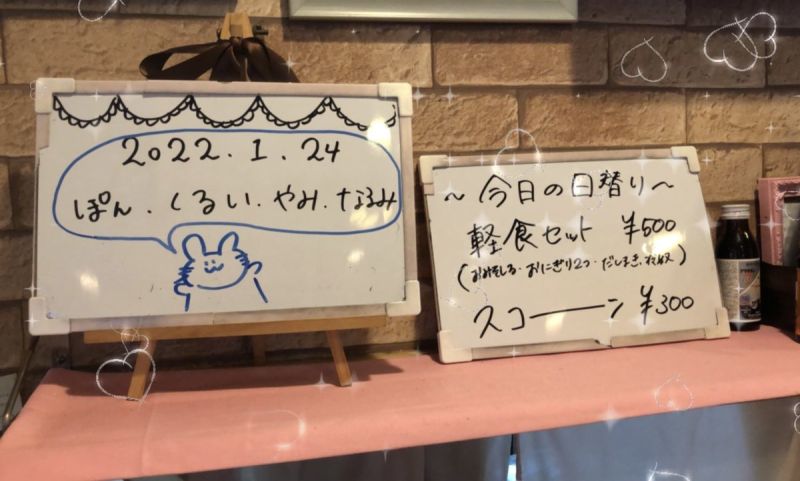 2022.1.24
ぽん.くるい.やみ.なるみ
～今日の日替り～
軽食セット ¥500
(おみそしる・おにぎり2つ・だしまき,冷奴)
スコーーン ¥300